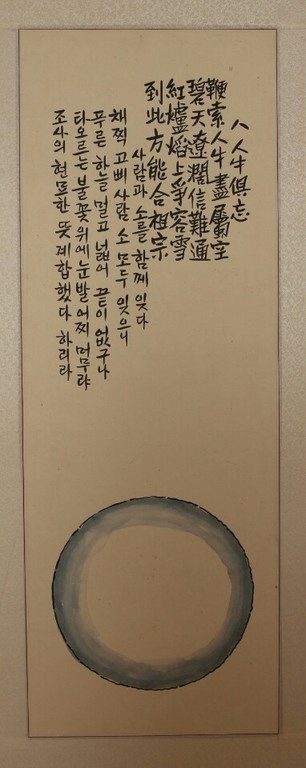 八 人牛俱忘
鞭索人牛盡屬空
碧天遼濶信難通
紅爐焰上爭容雪
到此方能合祖宗
사람과 소를 함께 잊다
채찍 고삐 사람 소 모두 잊으니
푸른 하늘 멀고 넓어 끝이 없구나
타오르는 불꽃 위에 눈발 어찌 머무랴
조사의 현묘한 뜻 계합했다 하리라